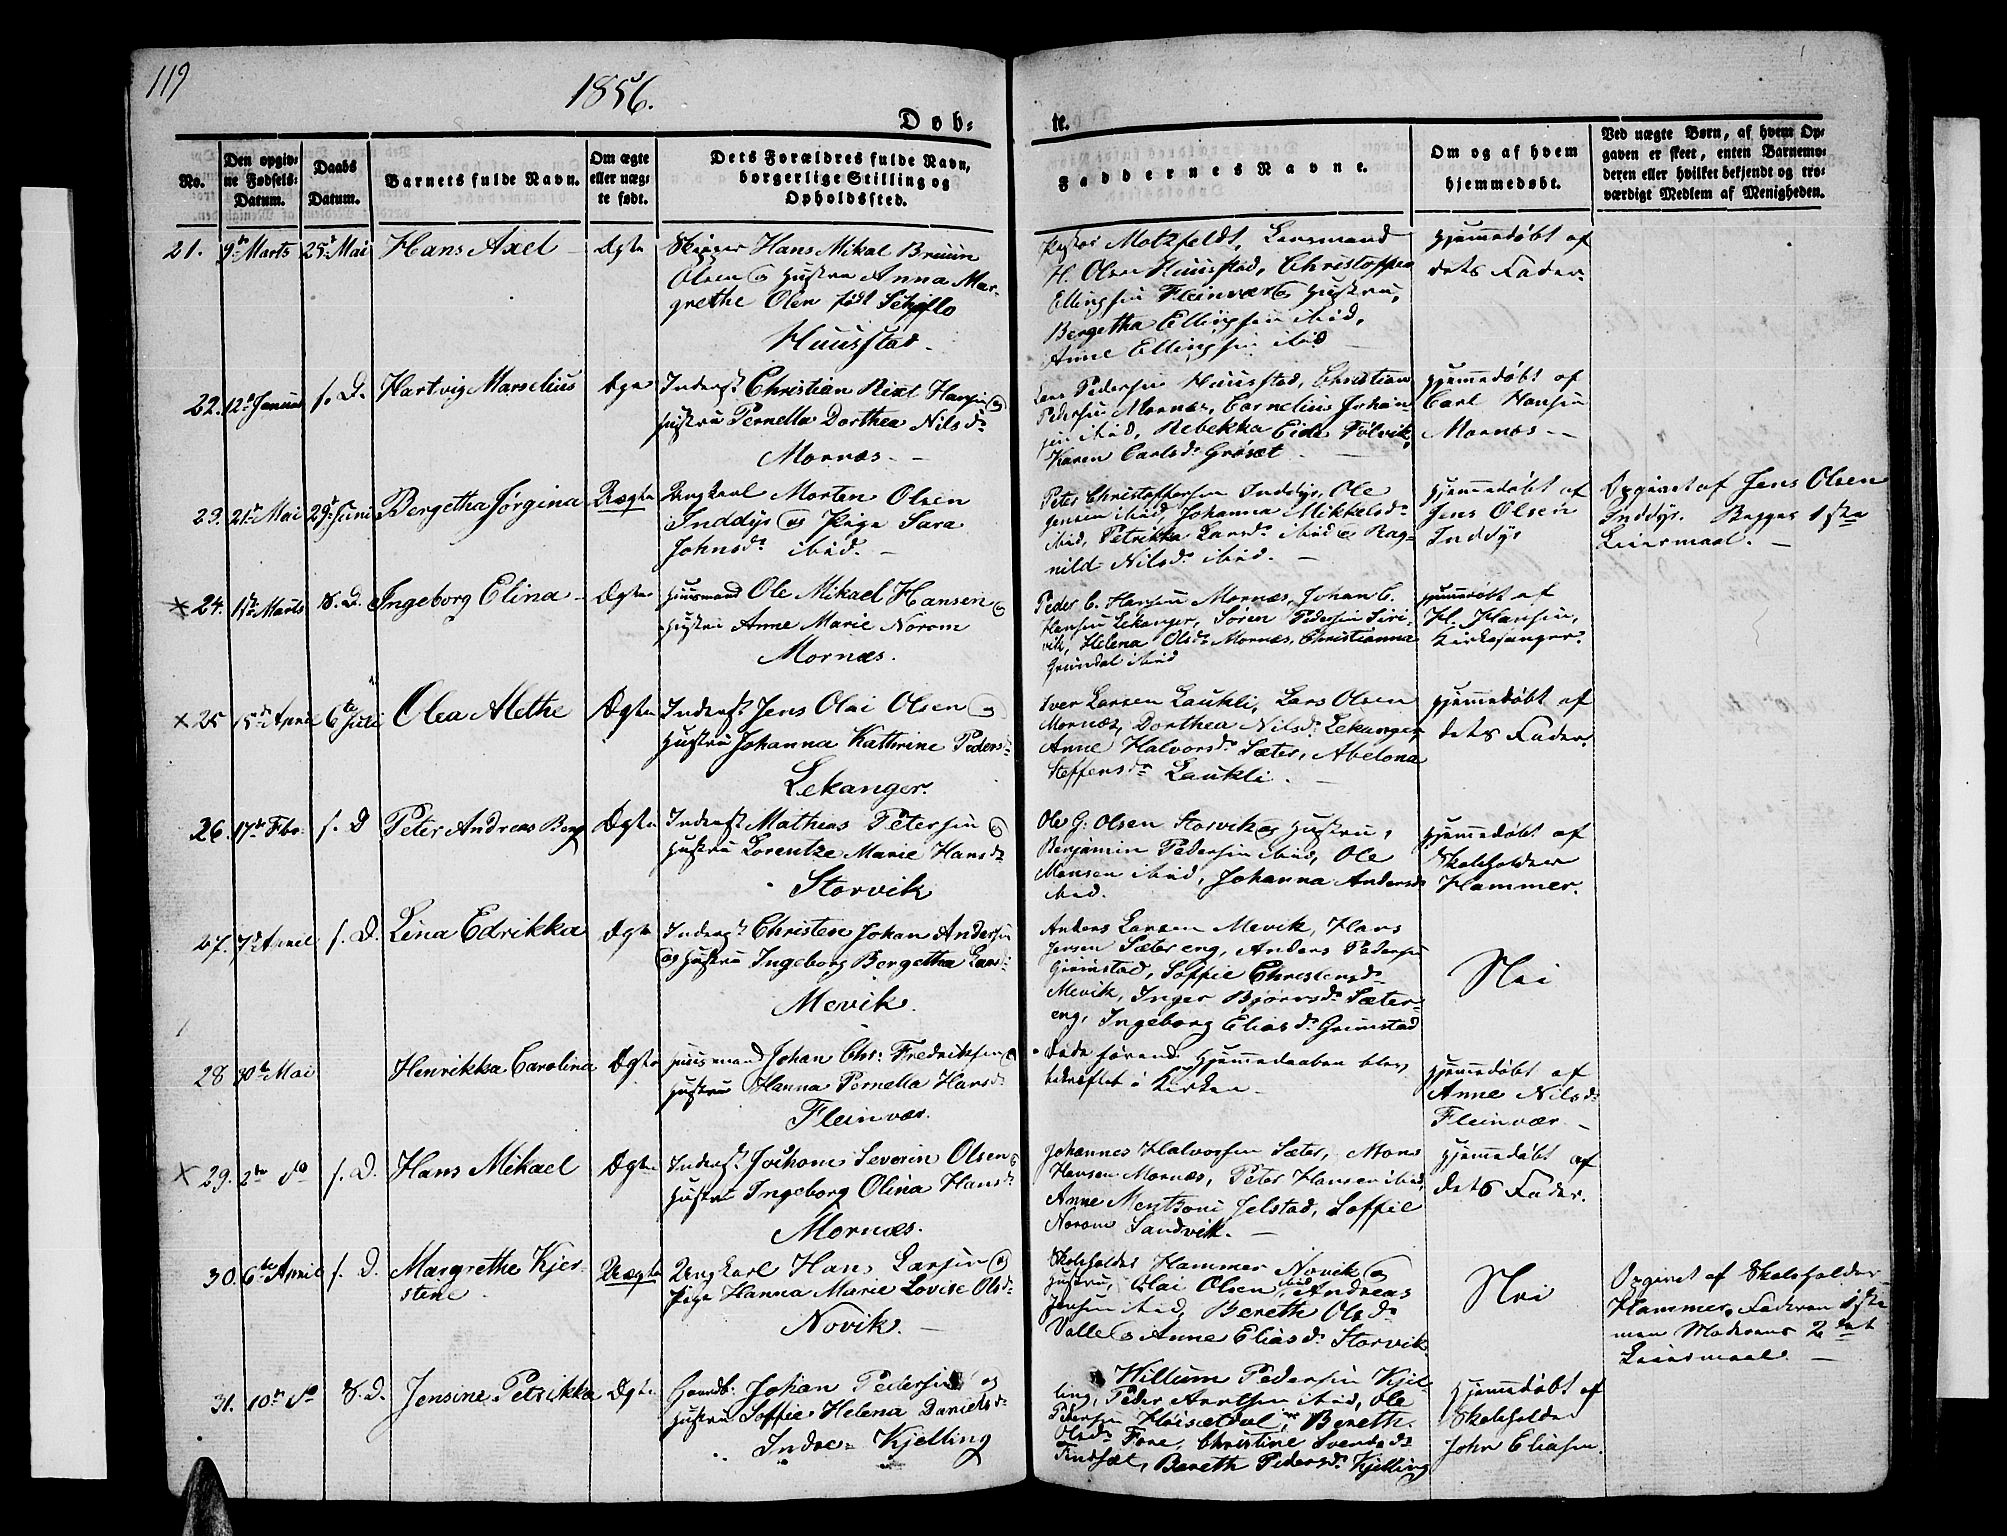 119
1856.
Døb-
te.
No.
Den opgiv-
ne Fødsels-
Datum.
Daabs
Datum.
Barnets fulde Navn.
Om ægte
eller uæg-
te født.
Dets Forældres fulde Navn,
borgerlige Stilling og
Opholdssted.
Faddernes Navne.
Om og af hvem
hjemmedøbt.
Ved uægte Børn, af hvem Op-
gaven er skeet, enten Barnemo-
deren eller hvilket bekjendt og tro-
værdigt Medlem af Menigheden.
21. 9de Marts 25de Mai Hans Axel Ægte
Hans Mikal Bruun
Olsen og Hustru Anna Mar-
grethe Olsen født
Huusstad.
Motzfeldt, Lensmand
H. Olsen Huusstad, Christoffer
Ellingsen Fleinvær og Hustru,
Bergetha Ellingsen ibid,
Anne Ellingsen ibid
Hjemmedøbt af
dets Fader.
22. 12te Januar s. D. Hartvig Marselius Ægte
Inderst Christian Hansen og
Hustru Pernella Dorthea Nilsdr
Mornæs.
Pedersen Huusstad, Christian
Pedersen Mornæs, Cornelius Johan-
sen ibid, Rebekka Eide Følvik,
Karen Carlsdr Grøset
Hjemmedøbt af
Carl Hansen
Mornæs
23. 21de Mai 29de Juni Bergetha Jørgina Uægte
Ungkarl Morten Olsen
Inddyr og Pige Sara
Johnsdr ibid.
Peter Christoffersen Inddyr, Ole
Jensen ibid, Johanna Mikkelsdr
ibid, Petrikka Larsdr ibid og Rag-
nild Nilsdr ibid.
Hjemmedøbt af
Jens Olsen
Inddyr
Opgivet af Jens Olsen
Inddyr. Begges 1ste
Leiermaal.
× 24. Marts s. D. Ingeborg Elina Ægte
Huusmand Ole Mikael Hansen og
Hustru Anne Marie Norom
Mornæs.
Peder C. Hansen Mornæs, Johan C.
Hansen Lekanger, Søren Pedersen
vik, Helena Olsdr Mornæs, Christianna
Grundal ibid
Hjemmedøbt af
H. Hansen,
Kirkesanger.
× 25 15de April 6te Juli Olea Alethe Ægte
Inderst Jens Olai Olsen og
Hustru Johanna Kathrine Pedersdr
Lekanger.
Iver Larsen Laukli, Lars Olsen
Mornæs, Dorthea Nilsdr Lekanger,
Anne Halvorsdr Sæter, Abelona
Steffensdr Laukli.
Hjemmedøbt af
dets Fader.
26. 17de Fbr. s. D Peter Andreas Berg Ægte
Inderst Mathias Petersen og
Hustru Lorentze Marie Hansdr
Storvik
Ole G. Olsen Storvik og Hustru,
Benjamin Pedersen ibid, Ole
Monsen ibid, Johanna Andersdr
ibid.
Hjemmedøbt af
Skoleholder
Hammer.
27. 7de April s. D. Lina Edrikka Ægte
Inderst Christen Johan Andersen
og Hustru Ingeborg Bergetha Larsdr
Mevik.
Anders Larsen Mevik, Hans
Jensen Sætereng, Anders Pedersen
Grimstad, Soffie Christensdr
Mevik, Inger Bjørnsdr Sæter-
eng, Ingeborg Eliasdr Grimstad
Nei
28 30te Mai Henrikka Carolina Ægte
Huusmand Johan Chr. Fredriksen og
Hustru Hanna Pernella Hansdr
Fleinvær.
Døde førend Hjemmedaaben blev
bekræftet i Kirken
Hjemmedøbt af
Anne Nilsdr
Fleinvær
× 29. 2de do s. D. Hans Mikael Ægte
Inderst Jochom Severin Olsen og
Hustru Ingeborg Olina Hansdr
Mornæs.
Johannes Halvorsen Sæter, Mons
Hansen Mornæs, Peter Hansen ibid,
Anne Mentzoni Jelstad, Soffie
Norom Sandvik.
Hjemmedøbt af
dets Fader.
30. 6te April s. D. Margrethe Kjer-
stine. Uægte
Ungkarl Hans Larsen og
Pige Hanna Marie Lovise Olsdr
Novik.
Skoleholder Hammer Novik og
Hustru, Olai Olsen ibid, Andreas
Jensen ibid, Bereth Olsdr
Valle og Anne Eliasdr Storvik.
Nei
Opgivet af Skoleholder
Hammer, Faderen 1ste
men Moderens 2det
Leiermaal.
31. 10de do s. D. Jensine Petrikka Ægte
Gaardb. Johan Pedersen og
Hustru Soffie Helena Danielsdr
Indre Kjelling
Willum Pedersen Kjel-
ling, Peder Arntsen ibid, Ole
Pedersen Høisetdal, Bereth
Olsdr Fore, Christine Svendsdr
Findset, Bereth Pedersdr Kjelling
Hjemmedøbt af
Skoleholder
John Eliasen.